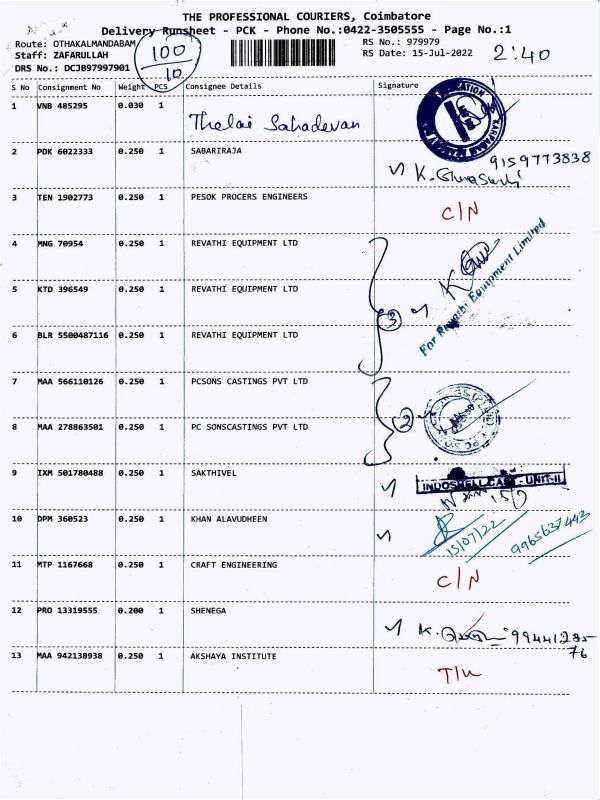 THE PROFESSIONAL COURIERS, Coimbatore
Delivery Runsheet - PCK - Phone No.:0422-3505555 - Page No.:1
Route: OTHAKALMANDABAM
RS No.: 979979
Staff: ZAFARULLAH
RS Date: 15-Jul-2022
DRS No.: DCJB97997901
100
10
2:40
S No Consignment No Weight PCS Consignee Details Signature
1 VNB 485295 0.030 1 Thelai Sahadevan
2 PDK 6022333 0.250 1 SABARIRAJA 9159773838
3 TEN 1902773 0.250 1 PESOK PROCERS ENGINEERS C/N
4 MNG 70954 0.250 1 REVATHI EQUIPMENT LTD
For Revathi Equipment Limited
5 KTD 396549 0.250 1 REVATHI EQUIPMENT LTD 3
6 BLR 5500487116 0.250 1 REVATHI EQUIPMENT LTD
7 MAA 566110126 0.250 1 PCSONS CASTINGS PVT LTD
2
8 MAA 278863501 0.250 1 PC SONSCASTINGS PVT LTD
9 IXM 501780488 0.250 1 SAKTHIVEL INDOSHELL CAST - UNIT-II
15/7
10 DPM 360523 0.250 1 KHAN ALAVUDHEEN 15/07/22 9965637443
11 MTP 1167668 0.250 1 CRAFT ENGINEERING C/N
12 PRO 13319555 0.200 1 SHENEGA K. 99441285
76
13 MAA 942138938 0.250 1 AKSHAYA INSTITUTE T/u